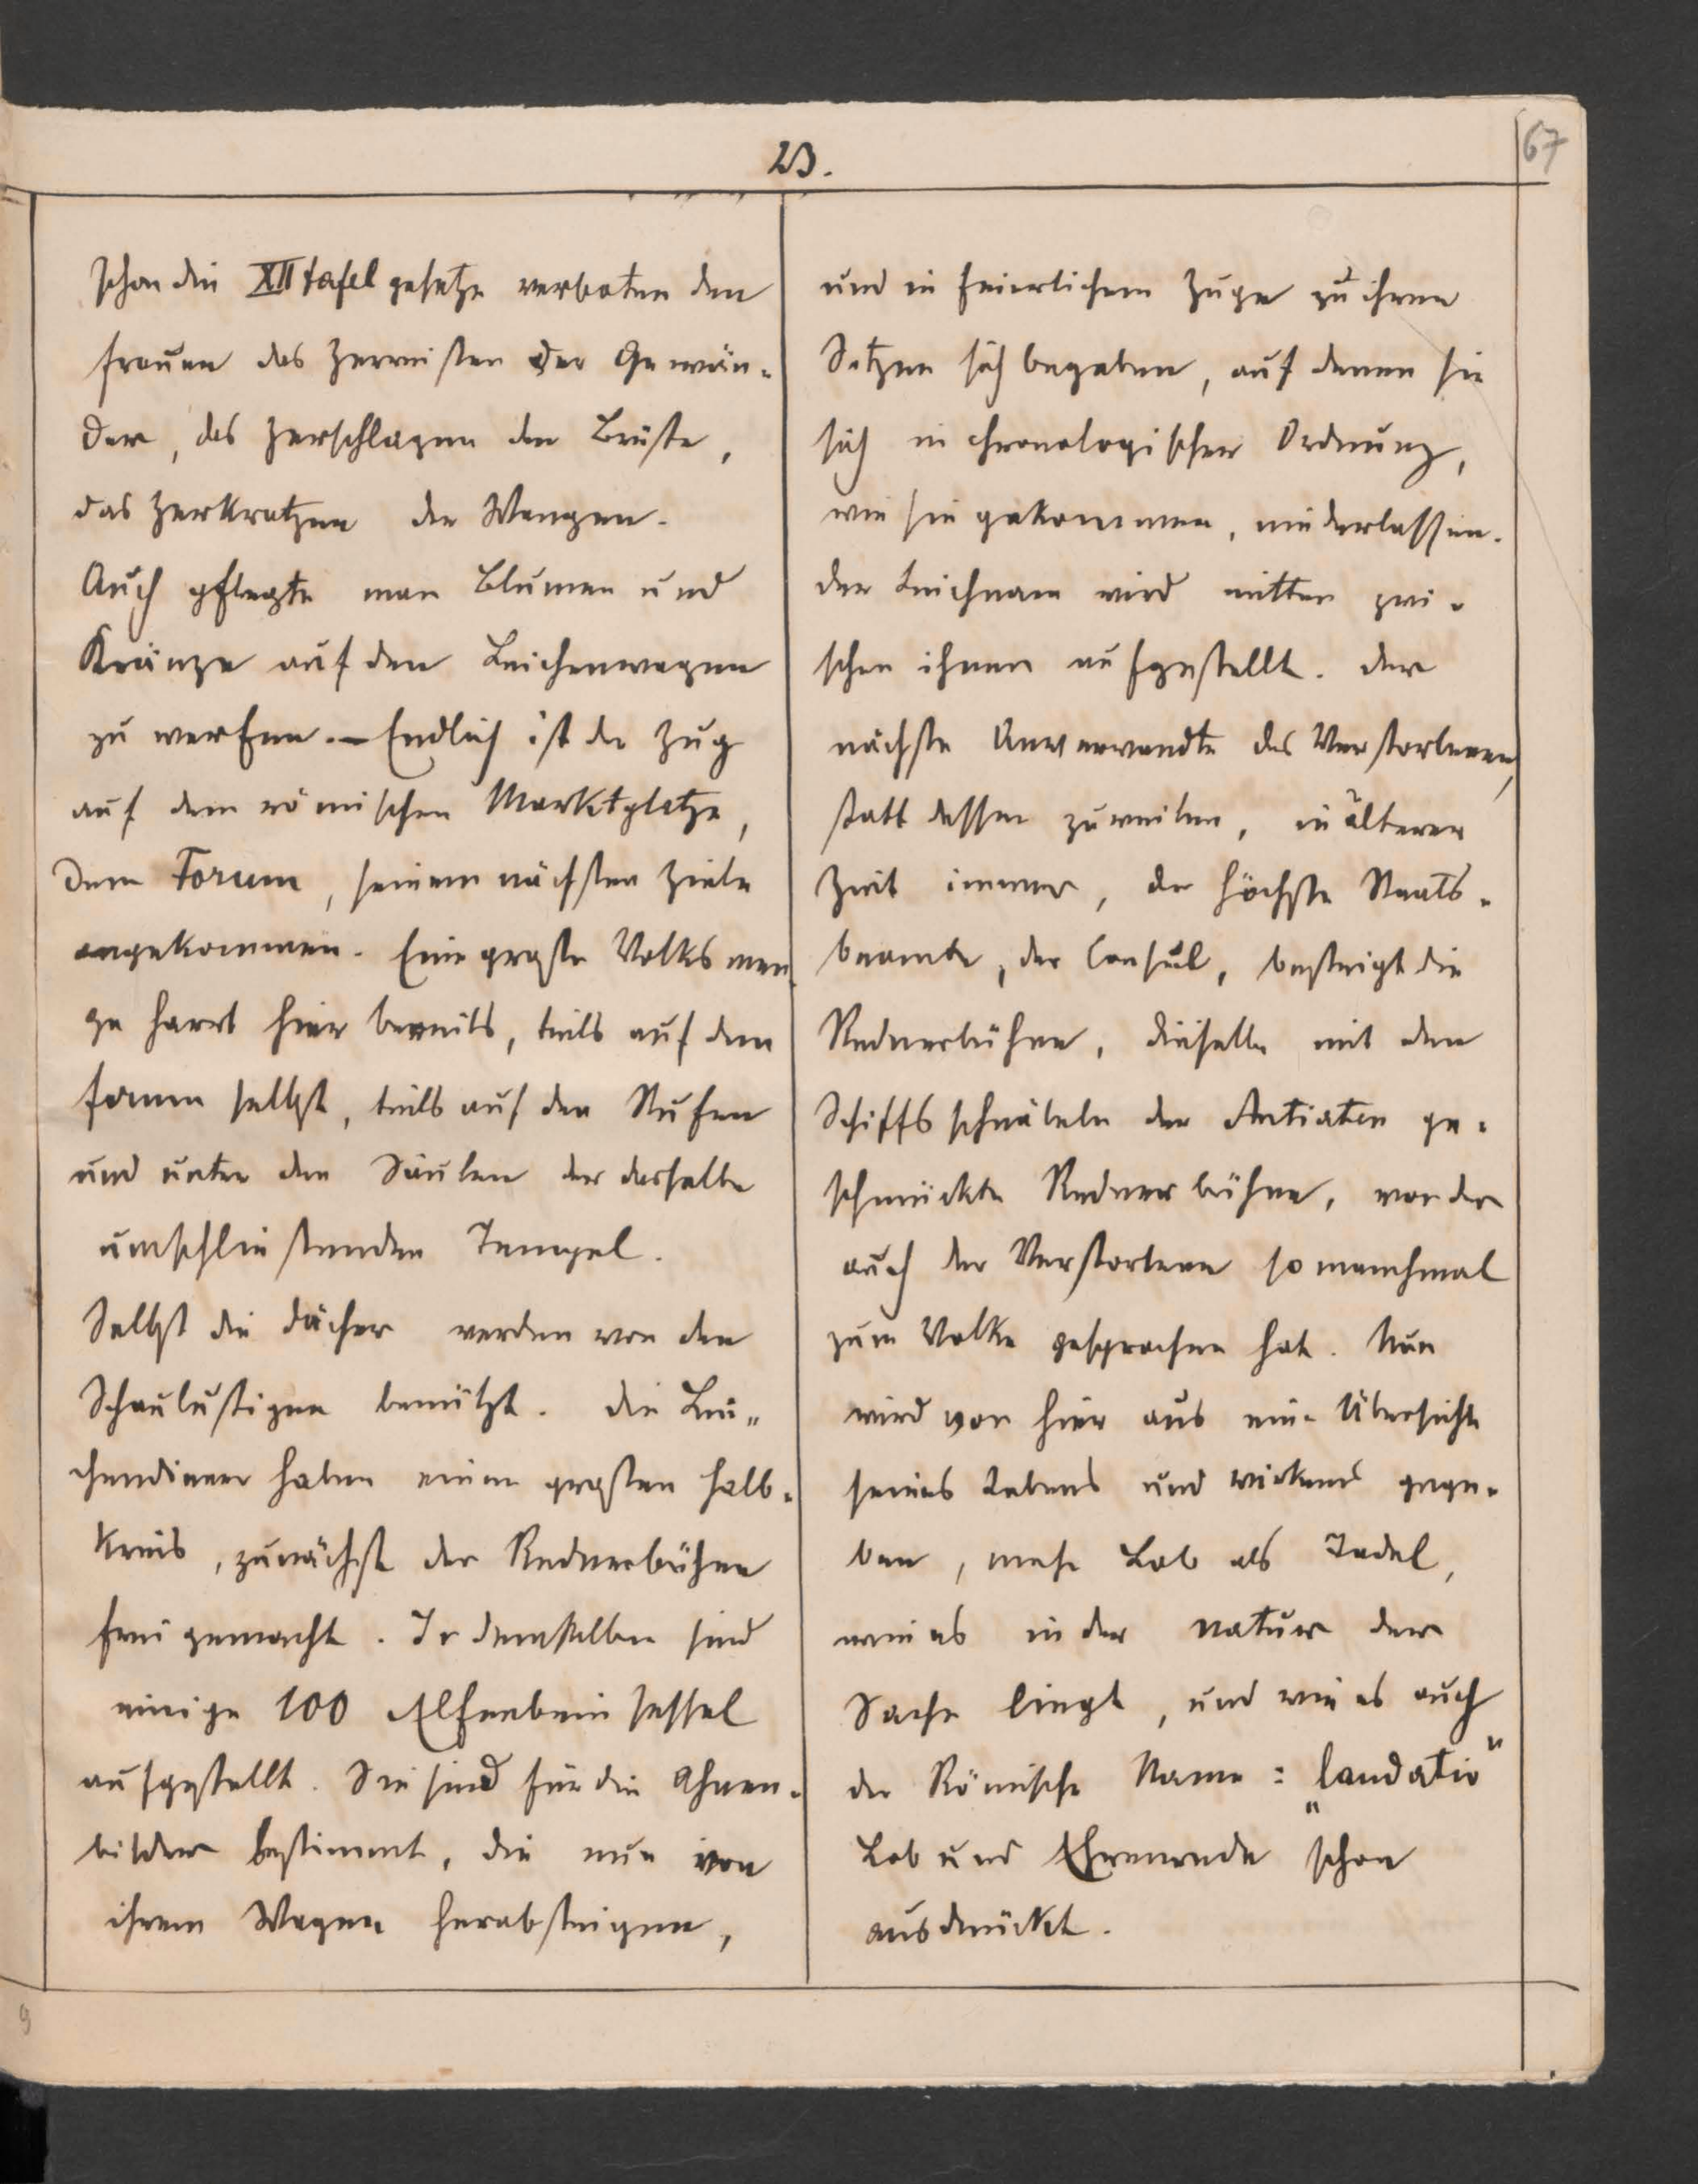 23.
67
schon die XII tafel gesetze verboten den
frauen das Zerreissen der Gewän-
der, das Zerschlagen der Brüste,
das Zerkratzen der Wangen.
Auch pflegte man Blumen und
Kränze auf den Leichenwagen
zu werfen. – Endlich ist der Zug
auf dem römischen Marktplatze,
dem Forum, seinem nächsten Ziele
angekommen. Eine grosse Volks men
ge harrt hier bereits, teils auf dem
forum selbst, teils auf den Stufen
und unter den Säulen der dasselbe
umschliessenden Tempel.
Selbst die Dächer werden von den
Schaulustigen benützt. Die Lei„
chendiener haben einen grossen halb-
kreis, zunächst der Rednerbühne
frei gemacht. In demselben sind
einige 100 Elfenbein sessel
aufgestellt. Sie sind für die Ahnen-
bilder bestimmt, die nun von
ihrem Wagen herabsteigen,
und in feierlichem Zuge zu ihren
Sitzen sich begeben, auf denen sie
sich in chronologischer Ordnung,
wie sie gekommen, niederlassen.
der Leichnam wird mitten zwi-
schen ihnen aufgestellt. der
nächste Anverwandte des Verstorbenen,
statt dessen zuweilen, in älterer
Zeit immer, der höchste Staats-
beamte, der Consul, besteigt die
Rednerbühne, dieselbe mit den
Schiffs schnäbeln der Antiaten ge-
schmückte Redner bühne, von der
auch der Verstorbene so manchmal
zum Volke gesprochen hat. Nun
wird von hier aus eine Übersicht
seines Lebens und wirkens gege-
ben, mehr Lob als Tadel,
wie es in der natur der
Sache liegt, und wie es auch
der Römische Name: „laudatio"
Lob und Ehrenrede schon
ausdrückt.
9